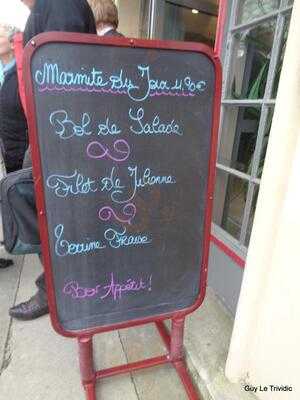 Marmite du Jour 11.90€
Bol de Salade
Filet de Julienne
Terrine Fraise
Bon Appétit!
Guy Le Trividic